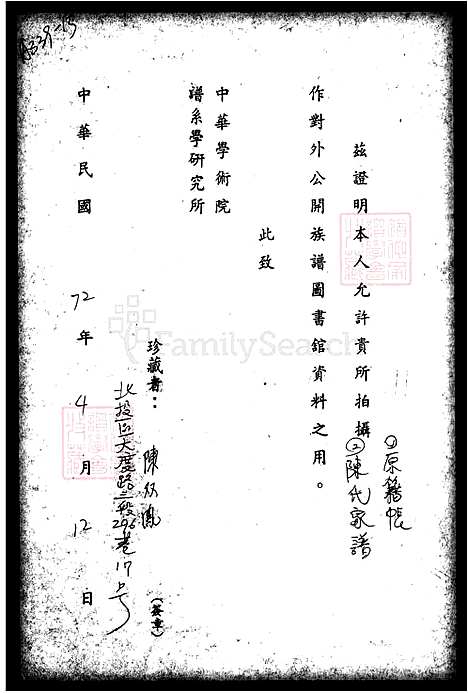 茲證明本人允許貴所拍攝①原籍帳
②陳氏家譜
作對外公開族譜圖書館資料之用。
此致
中華學術院
譜系學研究所
珍藏者：陳
北投區大度路三段296巷17号
(簽章)
中華民國72年4月12日
FamilySearch